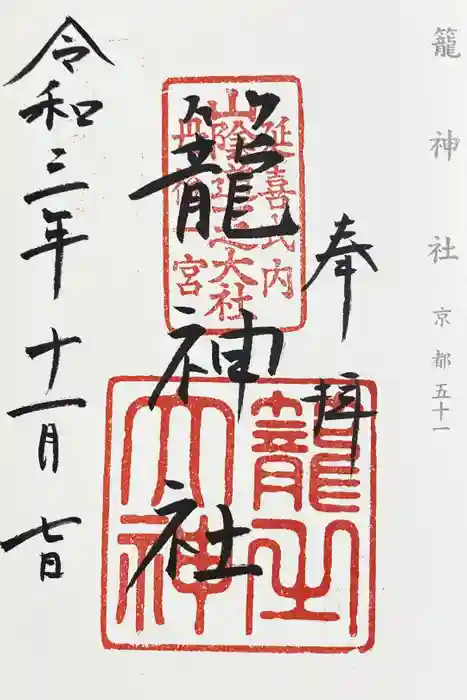 籠神社 京都五十一
奉拝
延喜式内
山陰道一之大社
丹後一宮
籠神社
籠之大神
令和三年十一月七日